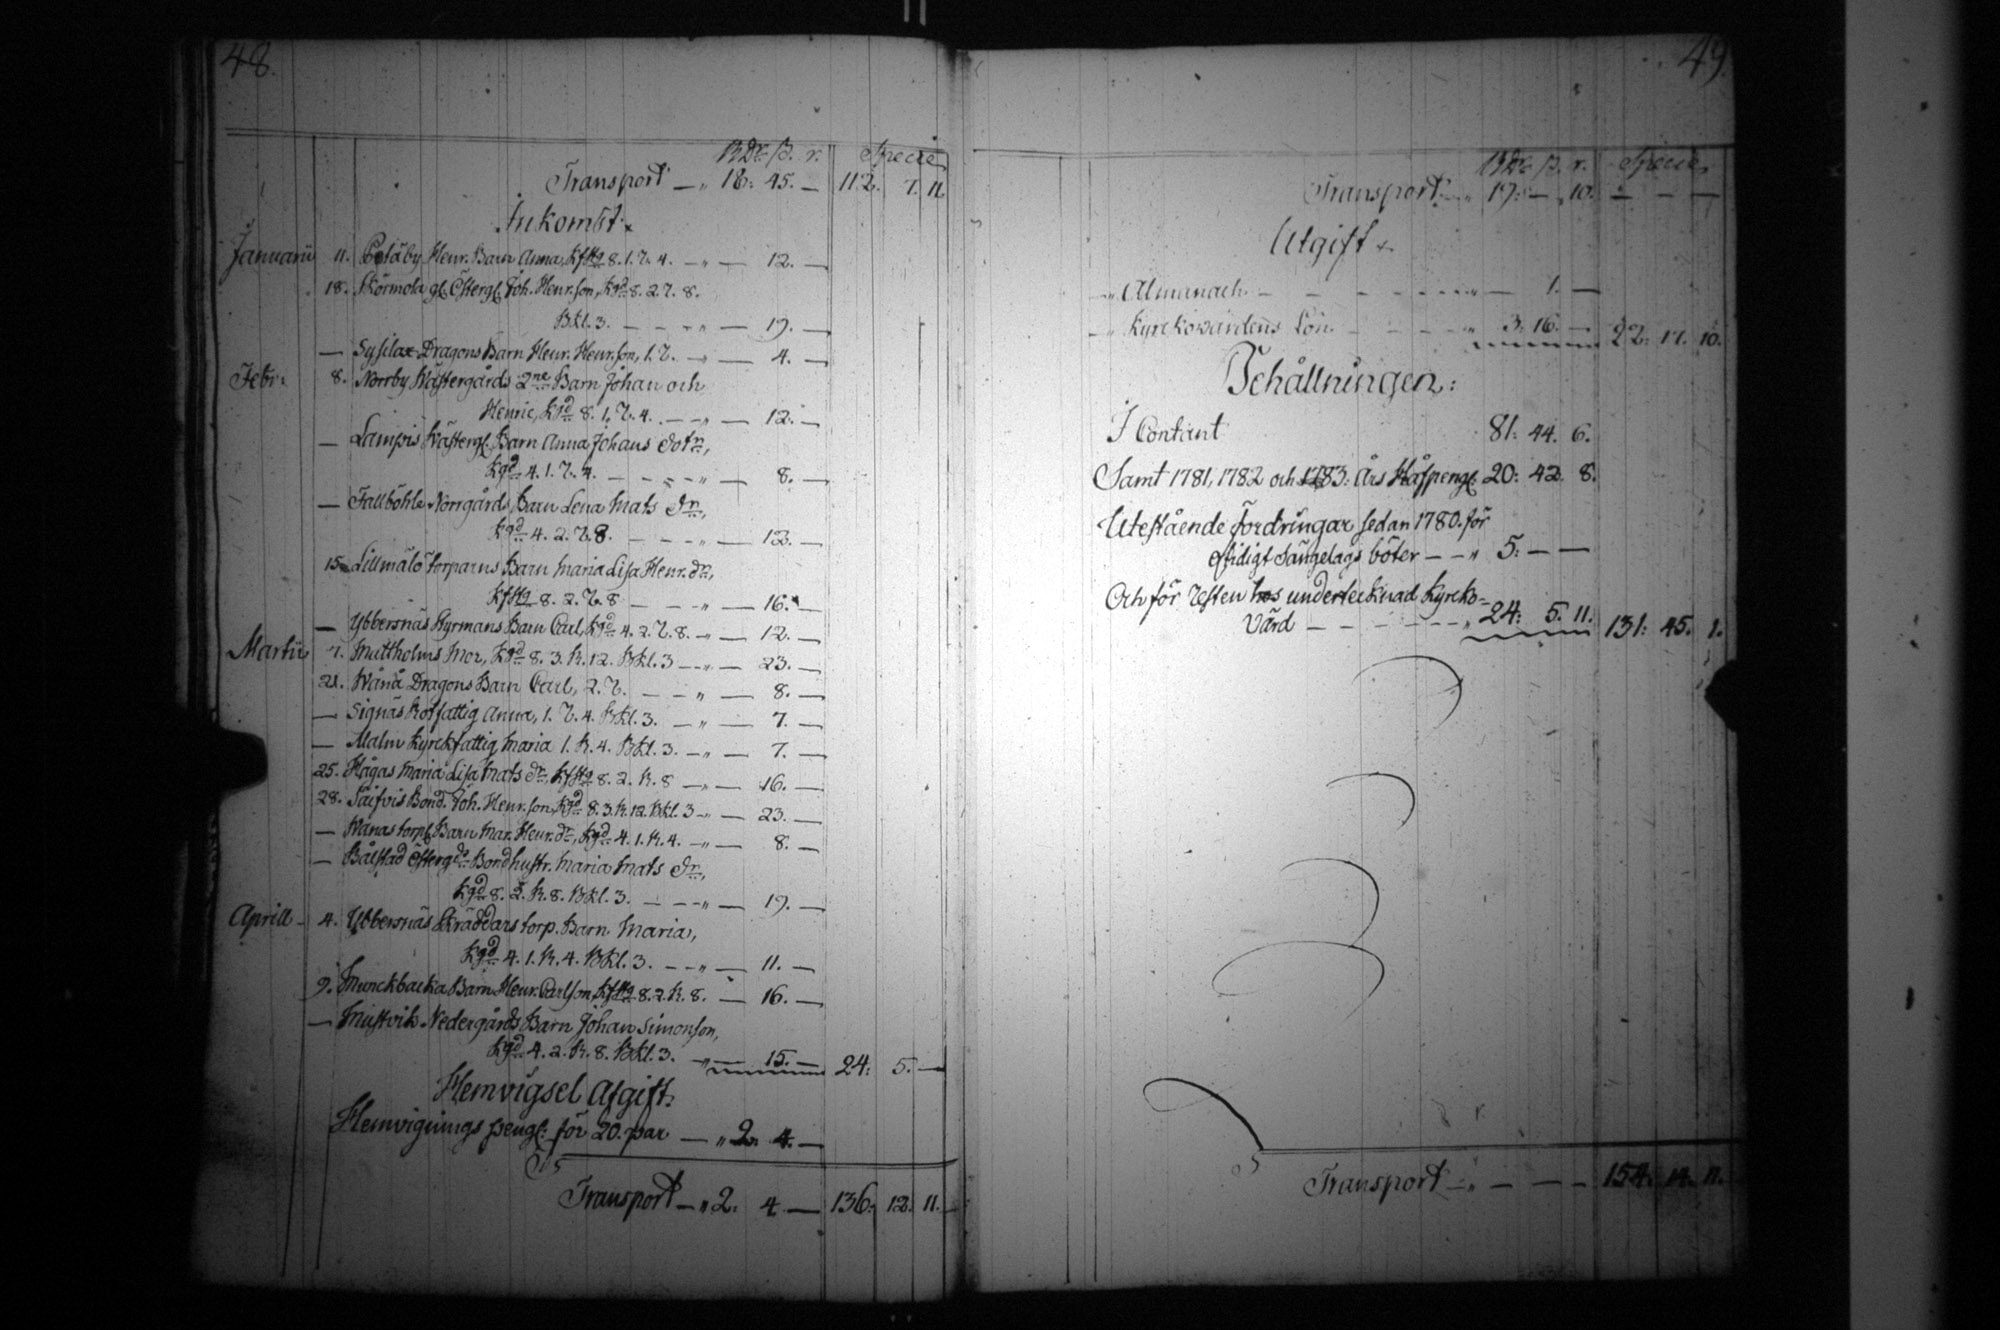 48.
RDr ß. r. Specie
Transport — „ 18: 45. — 112. 7. 11.
Inkomst.
Januarii 11. Petäby Henr. Barn Anna, Kfstg 8. 1. R. 4. — „ — 12. —
18. Skörmola gl. Österg. Joh. Henr.son, Kgd 8. 2. R. 8.
Bkl. 3. — — „ — 19. —
— Sysilax Dragons Barn Henr. Henr.son, 1. R. — „ — 4. —
Febr: 8. Norrby Wästergårds 2ne Barn Johan och
Henric, Kgd 8. 1. R. 4. — — „ — 12. —
— Lampis Wästerg. Barn Anna Johans dotr,
Kgd 4. 1. R. 4. — — — „ — 8. —
— Fallböhle Norrgårds Barn Lena Mats dr,
Kgd 4. 2. R. 8. — — — „ — 12. —
15. Lillmälö torparns Barn Maria Lisa Henr. dr,
Kfstg 8. 2. R. 8 — — — „ — 16. —
— Ybbersnäs Styrmans Barn Carl, Kgd 4. 2. R. 8. — „ — 12. —
Martii 7. Muttholms Mor, Kgd 8. 3. R. 12. Bkl. 3 — — „ — 23. —
21. Wånå Dragons Barn Carl, 2. R. — — „ — 8. —
— Signäs Rotfattig Anna, 1. R. 4. Bkl. 3. — „ — 7. —
— Malm Kyrckfattig Maria 1. R. 4. Bkl. 3. — „ — 7. —
25. Hågas Maria Lisa Mats dr, Kfstg 8. 2. R. 8 — „ — 16. —
28. Saifvis Bond. Joh. Henr.son, Kgd 8. 3. R. 12. Bkl. 3 — „ — 23. —
— Wånås torp. Barn Mar. Henr. dr, Kgd 4. 1. R. 4. — „ — 8. —
— Bålstad Östergds Bondhustr. Maria Mats dr,
Kgd 8. 2. R. 8. Bkl. 3. — — — „ — 19. —
Aprill — 4. Ybbersnäs Skräddars torp. Barn Maria,
Kgd 4. 1. R. 4. Bkl. 3. — — „ — 11. —
9. Munckbacka Barn Henr. Carlson, Kfstg 8. 2. R. 8. — 16. —
— Mustvik Nedergårds Barn Johan Simonson,
Kgd 4. 2. R. 8. Bkl. 3. — „ — 15. — 24: 5. —
Hemvigsel Afgift.
Hemvignings peng: för 20. par — „ 2. 4. —
Transport — „ 2: 4 — 136: 12. 11.
49.
RDr ß. r. Specie
Transport — „ 17: — 10. — — —
Utgift.
— „ Almanach — — — — „ — 1. —
— „ Kyrckowärdens Lön — — — „ 3: 16. — 22: 17. 10.
Behållningen:
I Contant 81: 44. 6.
Samt 1781, 1782 och 1783: Års Håfpeng: 20: 42. 8.
Utestående fordringar sedan 1780. för
osidigt Sängelags böter — — „ 5: — —
Och för resten hos undertecknad Kyrcko-
Värd — — — — — „ 24: 5. 11. 131: 45. 1.
Transport — „ — — — 154: 14. 11.